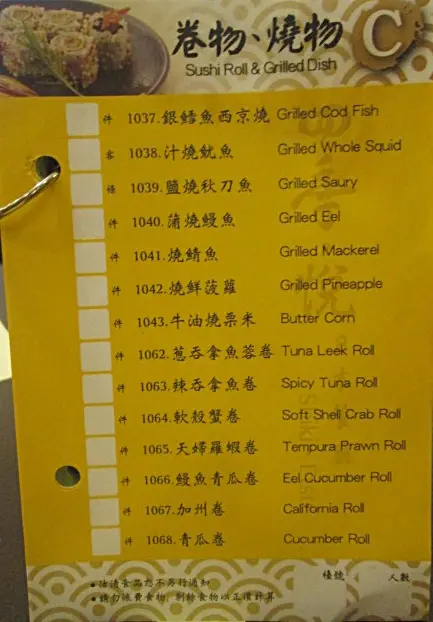 卷物、燒物 C
Sushi Roll & Grilled Dish
件 1037.銀鱈魚西京燒 Grilled Cod Fish
客 1038.汁燒魷魚 Grilled Whole Squid
條 1039.鹽燒秋刀魚 Grilled Saury
件 1040.蒲燒鰻魚 Grilled Eel
件 1041.燒鯖魚 Grilled Mackerel
件 1042.燒鮮菠蘿 Grilled Pineapple
件 1043.牛油燒栗米 Butter Corn
件 1062.葱吞拿魚蓉卷 Tuna Leek Roll
件 1063.辣吞拿魚卷 Spicy Tuna Roll
件 1064.軟殼蟹卷 Soft Shell Crab Roll
件 1065.天婦羅蝦卷 Tempura Prawn Roll
件 1066.鰻魚青瓜卷 Eel Cucumber Roll
件 1067.加州卷 California Roll
件 1068.青瓜卷 Cucumber Roll
檯號 人數
•沽清食品恕不另行通知
•請勿浪費食物，剩餘食物以正價計算